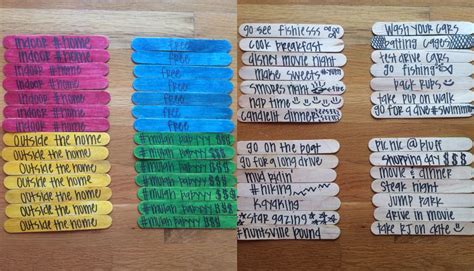 indoor #home
indoor #home
indoor #home
indoor #home
indoor #home
indoor #home
indoor #home
free
free
free
free
free
free
free
outside the home
outside the home
outside the home
outside the home
outside the home
outside the home
outside the home
#mulah babyyy $$$
#mulah babyyy $$$
#mulah babyyy $$$
#mulah babyyy $$$
#mulah babyyy $$$
#mulah babyyy $$$
#mulah babyyy $$$
go see fishiesss
cook breakfast
disney movie night
make sweets
smores night
nap time
candlelit dinner
wash your cars
batting cages
test drive cars
go fishing
back rubs
take pup on walk
go for a dive #swimming
go on the boat
go for a long drive
mud ridin'
#hiking
kayaking
star gazing
#huntsville bound
picnic @ bluff
shopping day $$$
movie & dinner
steak night
jump park
drive in movie
take RJ on date